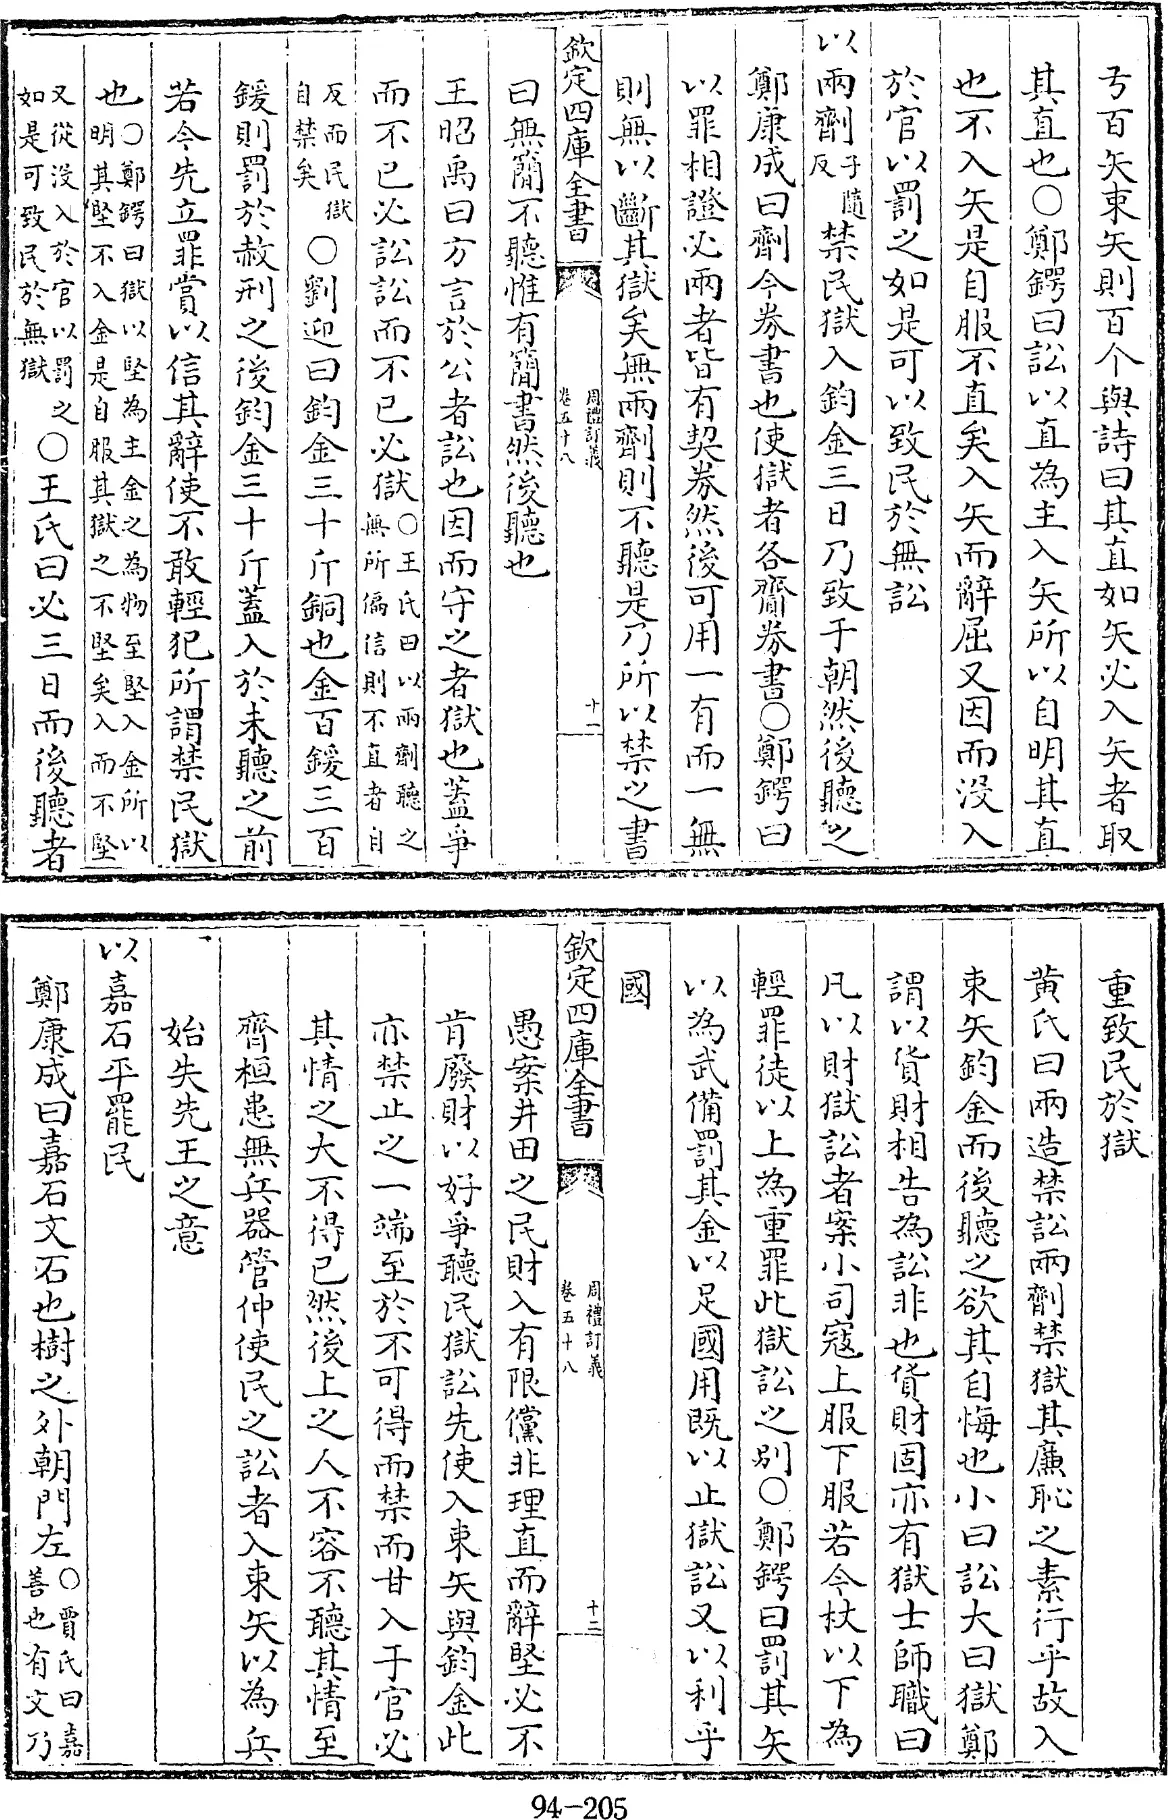 弓百矢束矢則百个與詩曰其直如矢必入矢者取
其直也○鄭鍔曰訟以直為主入矢所以自明其直
也不入矢是自服不直矣入矢而辭屈又因而没入
於官以罰之如是可以致民於無訟
以兩劑子隨反禁民獄入鈞金三日乃致于朝然後聽之
鄭康成曰劑今券書也使獄者各齎券書○鄭鍔曰
以罪相證必兩者皆有契券然後可用一有而一無
則無以斷其獄矣無兩劑則不聽是乃所以禁之書
欽定四庫全書
周禮訂義
卷五十八
十一
曰無簡不聽惟有簡書然後聽也
王昭禹曰方言於公者訟也因而守之者獄也蓋爭
而不已必訟訟而不已必獄○王氏曰以兩劑聽之無所偏信則不直者自
反而民獄自禁矣○劉迎曰鈞金三十斤銅也金百鍰三百
鍰則罰於赦刑之後鈞金三十斤蓋入於未聽之前
若今先立罪賞以信其辭使不敢輕犯所謂禁民獄
也○鄭鍔曰獄以堅為主金之為物至堅入金所以明其堅不入金是自服其獄之不堅矣入而不堅
又從没入於官以罰之如是可致民於無獄○王氏曰必三日而後聽者
重致民於獄
黄氏曰兩造禁訟兩劑禁獄其廉恥之素行乎故入
束矢鈞金而後聽之欲其自悔也小曰訟大曰獄鄭
謂以貨財相告為訟非也貨財固亦有獄士師職曰
凡以財獄訟者案小司寇上服下服若今杖以下為
輕罪徒以上為重罪此獄訟之别○鄭鍔曰罰其矢
以為武備罰其金以足國用既以止獄訟又以利乎
國
欽定四庫全書
周禮訂義
卷五十八
十二
愚案井田之民財入有限儻非理直而辭堅必不
肯廢財以好爭聽民獄訟先使入束矢與鈞金此
亦禁止之一端至於不可得而禁而甘入于官必
其情之大不得已然後上之人不容不聽其情至
齊桓患無兵器管仲使民之訟者入束矢以為兵
始失先王之意
以嘉石平罷民
鄭康成曰嘉石文石也樹之外朝門左○賈氏曰嘉善也有文乃
94-205